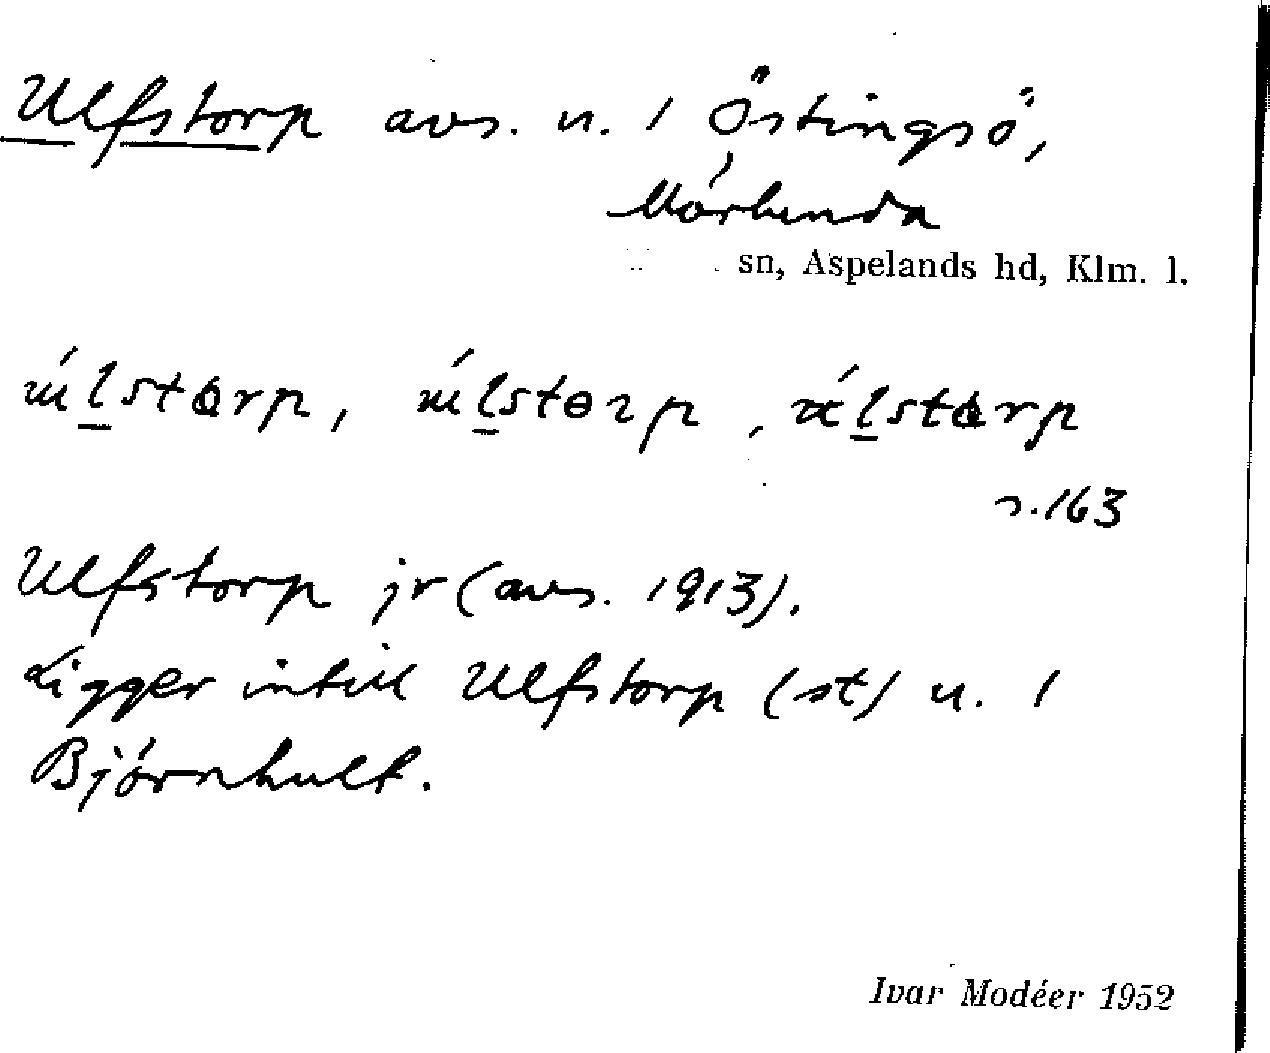 Ulfstorp avs. u. 1 Östingsö,
Mörlunda
sn, Aspelands hd, Klm. l.
s. 163
Ulfstorp jr (avs. 1913).
Ligger intill Ulfstorp (st) u. 1
Björnhult.
Ivar Modéer 1952